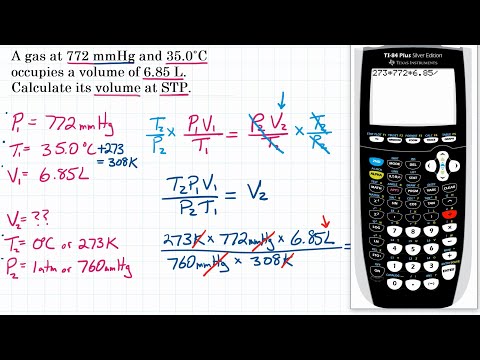 A gas at 772 mmHg and 35.0°C
occupies a volume of 6.85 L.
Calculate its volume at STP.
P₁ = 772 mmHg
T₁ = 35.0°C +273
= 308K
V₁ = 6.85L
V₂ = ??
T₂ = 0°C or 273K
P₂ = 1atm or 760mmHg
T₂/P₂ × P₁V₁/T₁ = P₂V₂/T₂ × T₂/P₂
T₂P₁V₁/P₂T₁ = V₂
273K × 772mmHg × 6.85L / 760mmHg × 308K =
TI-84 Plus Silver Edition
TEXAS INSTRUMENTS
273*772*6.85/